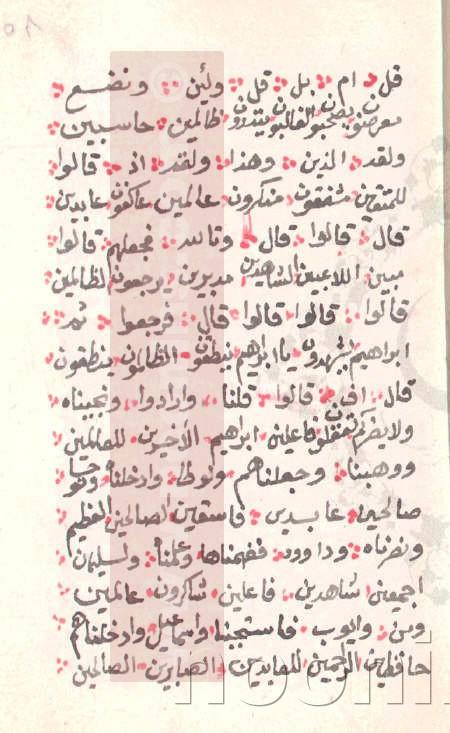 قل ام بل قل ولئن ونضع
معرضون يصحبون الغالبون ينذرون ظالمين حاسبين
ولقد الذين وهذا ولقد اذ قالوا
للمتقين مشفقون منكرون عالمين عاكفون عابدين
قال قالوا قال وتالله فجعلهم قالوا
مبين اللاعبين الشاهدين مدبرين يرجعون الظالمين
قالوا قالوا قالوا قال فرجعوا ثم
ابراهيم يشهدون يا ابراهيم ينطقون الظالمون ينطقون
قال اف قالوا قلنا وارادوا ونجيناه
ولا يضركم تعقلون فاعلين ابراهيم الأخسرين للعالمين
ووهبنا وجعلناهم ولوطا وادخلناه ونوحا
صالحين عابدين فاسقين الصالحين العظيم
ونصرناه وداوود ففهمناها وعلمناه ولسليمان
اجمعين شاهدين فاعلين شاكرون عالمين
ومن وايوب فاستجبنا واسماعيل وادخلناهم
حافظين الراحمين للعابدين الصابرين الصالحين